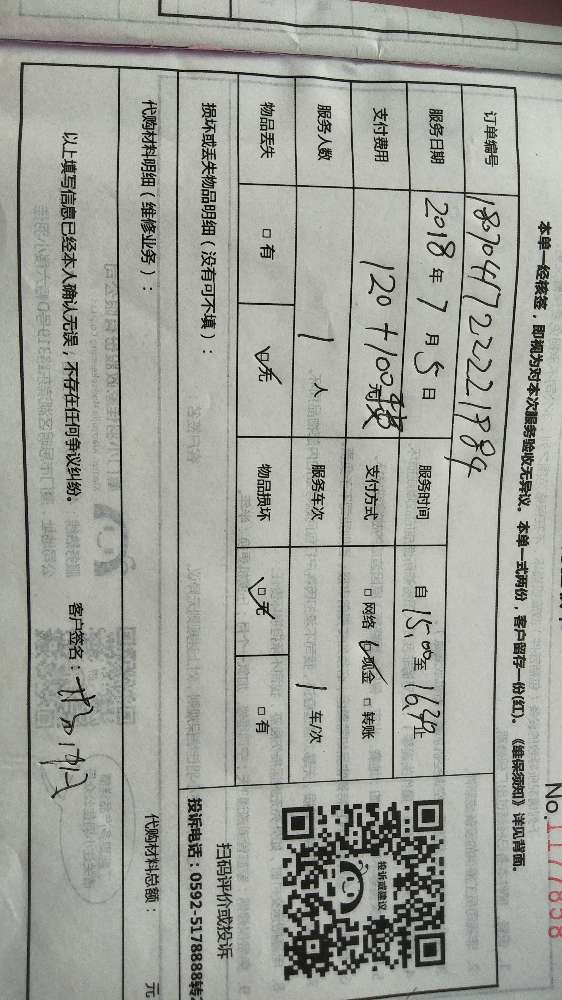 No.1177858
本单一经核签，即视为对本次服务验收无异议。本单一式两份，客户留存一份(红)。《维保须知》详见背面。
订单编号 1807041722221984
服务日期 2018年7月5日 服务时间 自15:00至16:30止
支付费用 120+100 元 支付方式 □网络 □现金 □转账
服务人数 1人 服务车次 1车/次
物品丢失 □有 □无 物品损坏 □无 □有
损坏或丢失物品明细（没有可不填）：
投诉或建议
扫码评价或投诉
投诉电话：0592-5178888转
代购材料明细（维修业务）：
代购材料总额： 元
以上填写信息已经本人确认无误，不存在任何争议纠纷。 客户签名：